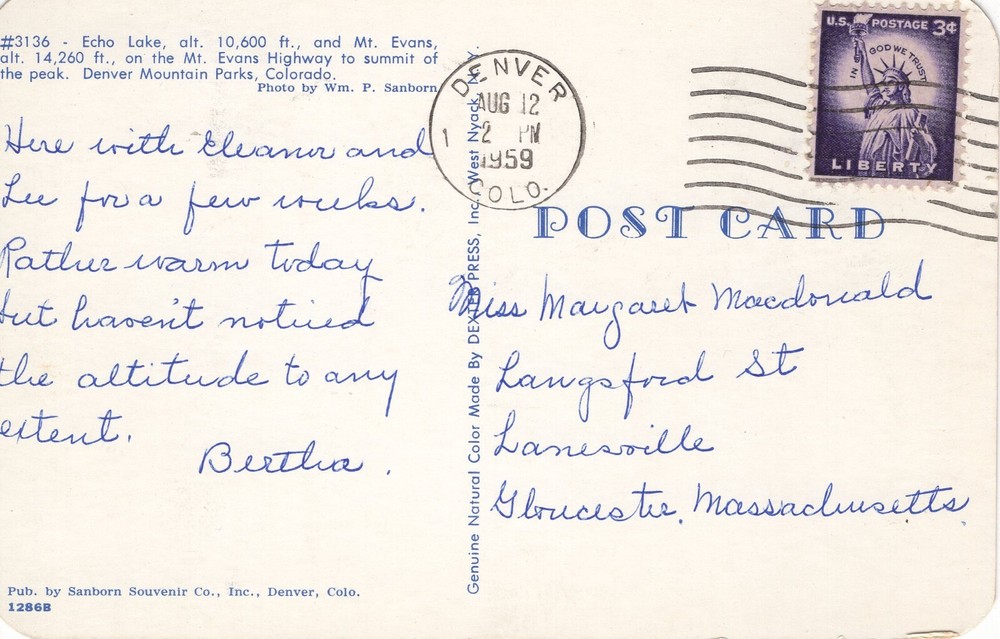 #3136 - Echo Lake, alt. 10,600 ft., and Mt. Evans,
alt. 14,260 ft., on the Mt. Evans Highway to summit of
the peak. Denver Mountain Parks, Colorado.
Photo by Wm. P. Sanborn
Here with Eleanor and
Lee for a few weeks.
Rather warm today
but haven't noticed
the altitude to any
extent.
Bertha.
Pub. by Sanborn Souvenir Co., Inc., Denver, Colo.
1286B
Genuine Natural Color Made By DEXTER PRESS, Inc. West Nyack, N. Y.
DENVER
AUG 12
12 PM
1959
COLO.
U.S. POSTAGE 3¢
IN GOD WE TRUST
LIBERTY
POST CARD
Miss Margaret Macdonald
Langsford St
Lanesville
Gloucester, Massachusetts